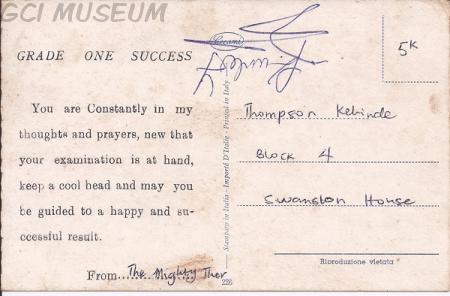 GCI MUSEUM
GRADE ONE SUCCESS
You are Constantly in my
thoughts and prayers, new that
your examination is at hand,
keep a cool head and may you
be guided to a happy and su-
ccessful result.
From The Mighty Thor
Cecami
Stampato in Italia - Importé D'Italie - Printed in Italy
226
5K
Thompson Kehinde
Block 4
Swanston House
Riproduzione vietata